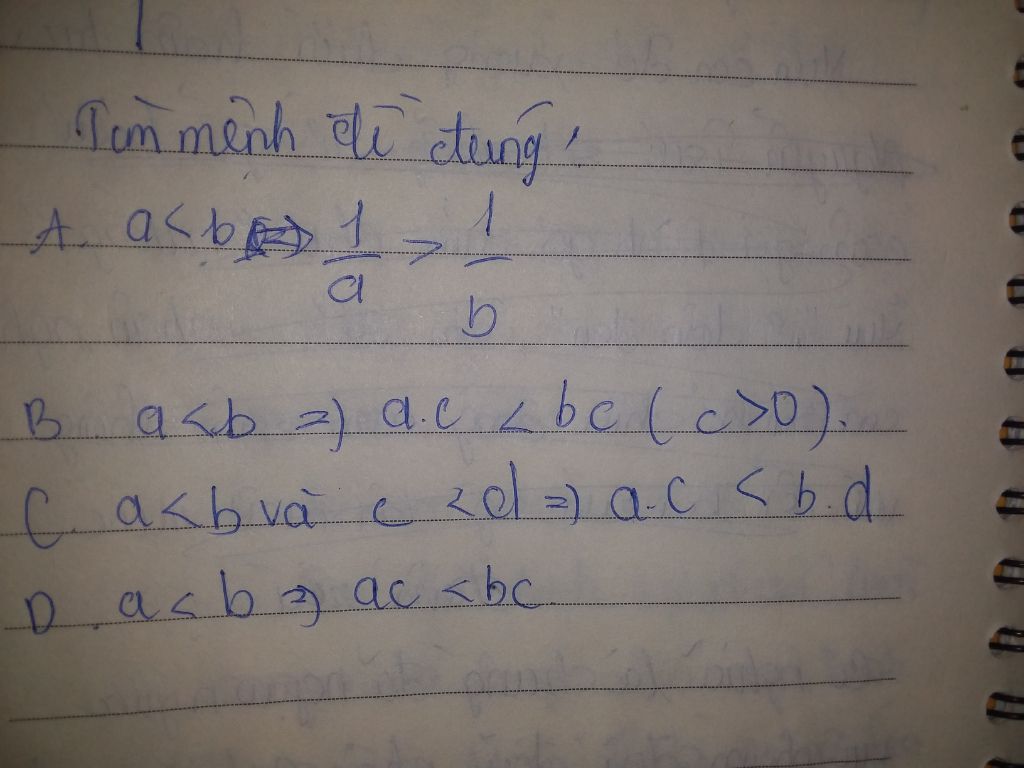 Tìm mệnh đề đúng:
A. a < b <=> 1/a > 1/b
B. a < b => a.c < bc ( c > 0 ).
C. a < b và c < d => a.c < b.d
D. a < b => ac < bc